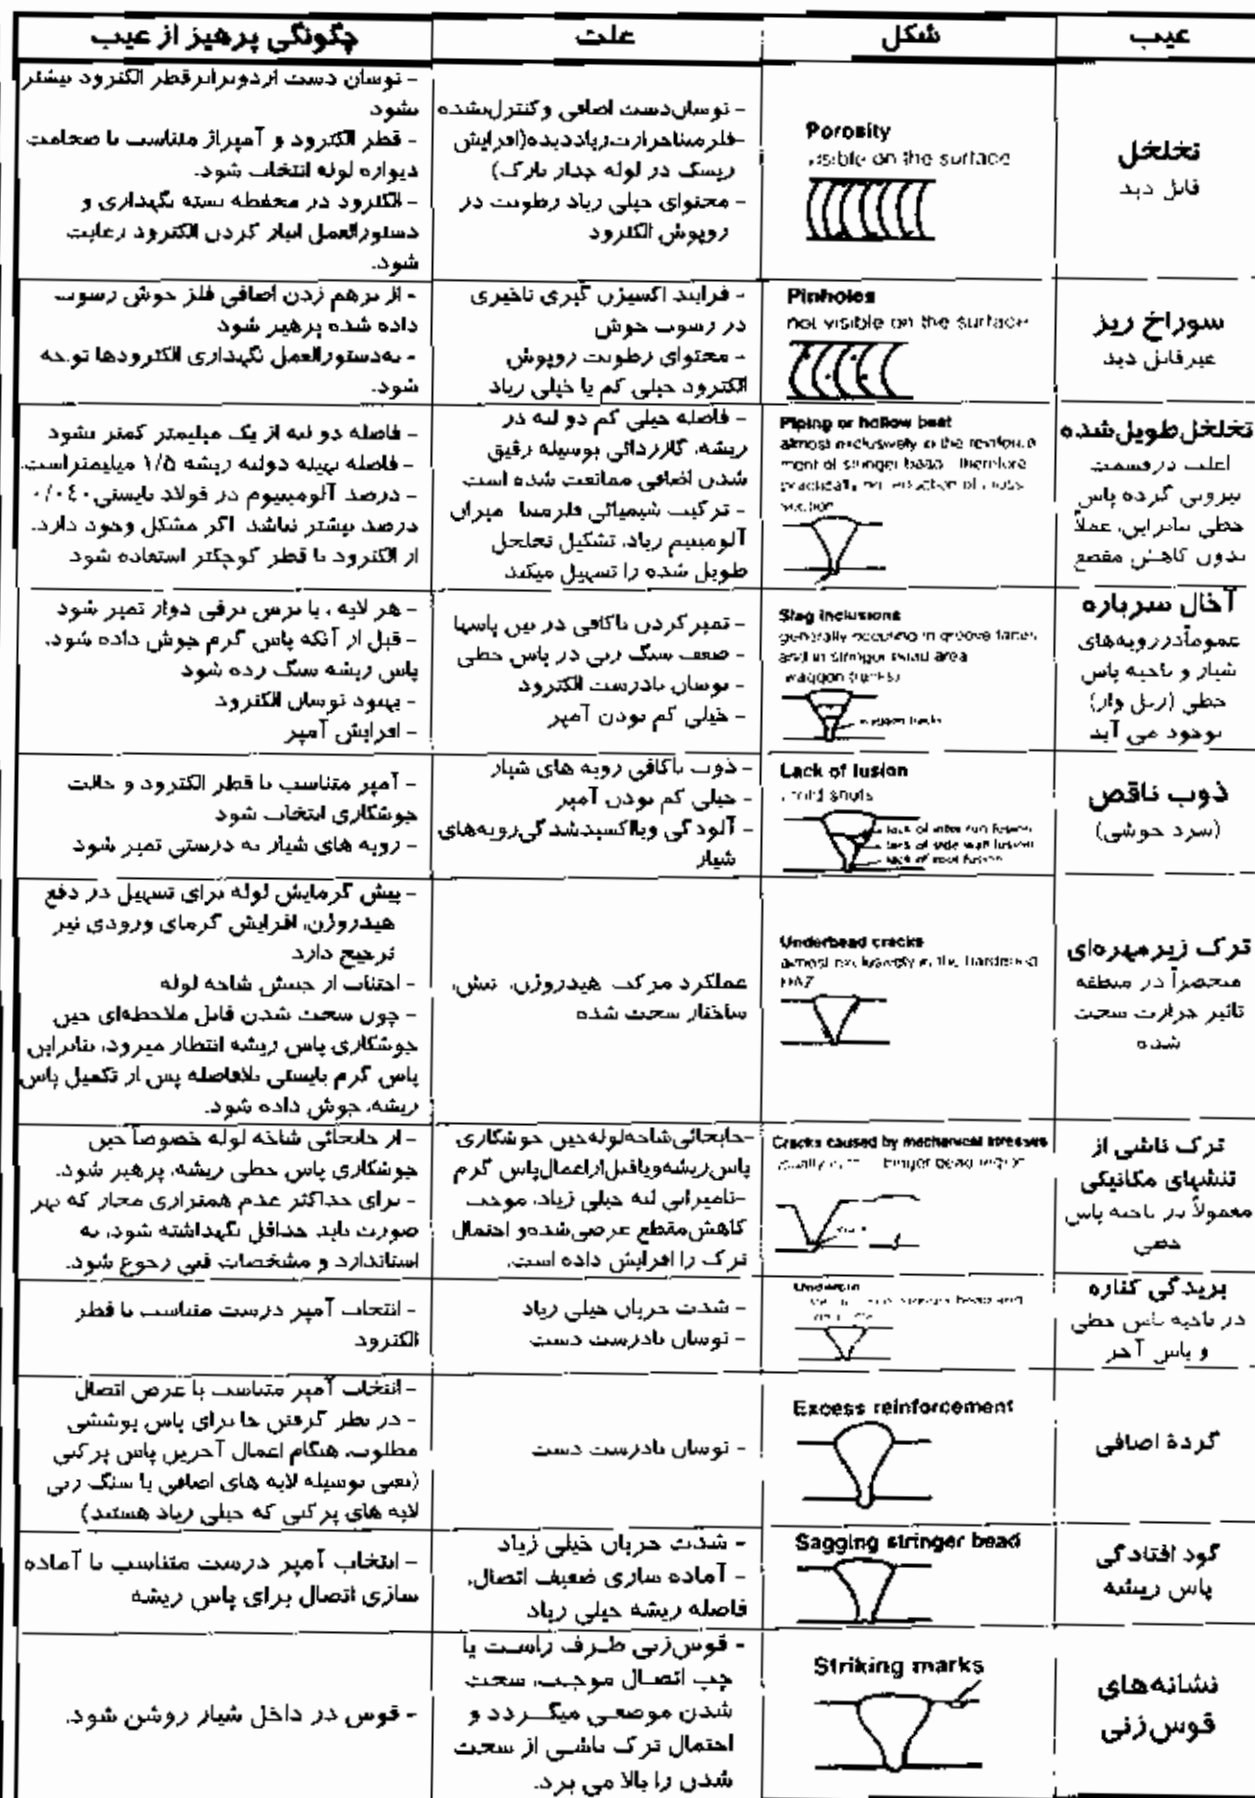 عیب
شکل
علت
چگونگی پرهیز از عیب
تخلخل
قابل دید
Porosity
visible on the surface
- نوسان دست اضافی و کنترل نشده
- فلز مبنا حرارت زیاد دیده (افزایش
ریسک در لوله جدار نازک)
- محتوای خیلی زیاد رطوبت در
روپوش الکترود
- نوسان دست از دو برابر قطر الکترود بیشتر
نشود
- قطر الکترود و آمپراژ متناسب با ضخامت
دیواره لوله انتخاب شود.
- الکترود در محفظه بسته نگهداری و
دستورالعمل انبار کردن الکترود رعایت
شود.
سوراخ ریز
غیرقابل دید
Pinholes
not visible on the surface
- فرایند اکسیژن گیری تاخیری
در رسوب جوش
- محتوای رطوبت روپوش
الکترود خیلی کم یا خیلی زیاد
- از برهم زدن اضافی فلز جوش رسوب
داده شده پرهیز شود
- به دستورالعمل نگهداری الکترودها توجه
شود.
تخلخل طویل شده
اغلب در قسمت
بیرونی گرده پاس
خطی بنابراین، عملاً
بدون کاهش مقطع
Piping or hollow beat
almost exclusively in the reinforce
ment of stringer bead. Therefore
practically no reduction of cross
section
- فاصله خیلی کم دو لبه در
ریشه، گاززدائی بوسیله رقیق
شدن اضافی ممانعت شده است
- ترکیب شیمیائی فلزمبنا میزان
آلومینیم زیاد، تشکیل تخلخل
طویل شده را تسهیل میکند
- فاصله دو لبه از یک میلیمتر کمتر نشود
- فاصله بهینه دولبه ریشه ۱/۵ میلیمتر است.
- درصد آلومینیوم در فولاد بایستی ۰/۰۴۰
درصد بیشتر نباشد اگر مشکل وجود دارد.
از الکترود با قطر کوچکتر استفاده شود
آخال سرباره
عموماً در رویه‌های
شیار و ناحیه پاس
خطی (ریل وار)
بوجود می آید
Slag inclusions
generally occuring in groove faces
and in stringer bead area
waggon tracks)
waggon tracks
- تمیز کردن ناکافی در بین پاسها
- ضعف سنگ زنی در پاس خطی
- نوسان نادرست الکترود
- خیلی کم بودن آمپر
- هر لایه ، با برس برقی دوار تمیز شود
- قبل از آنکه پاس گرم جوش داده شود.
پاس ریشه سنگ زده شود
- بهبود نوسان الکترود
- افزایش آمپر
ذوب ناقص
(سرد جوشی)
Lack of fusion
cold shuts
lack of inter run fusion
lack of side wall fusion
lack of root fusion
- ذوب ناکافی رویه های شیار
- خیلی کم بودن آمپر
- آلودگی ویااکسیدشدگی رویه‌های
شیار
- آمپر متناسب با قطر الکترود و حالت
جوشکاری انتخاب شود
- رویه های شیار به درستی تمیز شود
ترک زیر مهره‌ای
منحصراً در منطقه
تاثیر حرارت سخت
شده
Underbead cracks
almost exclusively in the hardened
HAZ
عملکرد مرکب هیدروژن، تنش،
ساختار سخت شده
- پیش گرمایش لوله برای تسهیل در دفع
هیدروژن، افزایش گرمای ورودی نیز
ترجیح دارد
- اجتناب از جنبش شاخه لوله
- چون سخت شدن قابل ملاحظه‌ای حین
جوشکاری پاس ریشه انتظار میرود، بنابراین
پاس گرم بایستی بلافاصله پس از تکمیل پاس
ریشه، جوش داده شود.
ترک ناشی از
تنشهای مکانیکی
معمولاً در ناحیه پاس
خطی
Cracks caused by mechanical stresses
usually in stringer bead region
-جابجائی شاخه لوله حین جوشکاری
پاس ریشه ویاقبل از اعمال پاس گرم
-نامیزانی لبه خیلی زیاد، موجب
کاهش مقطع عرضی شده و احتمال
ترک را افزایش داده است.
- از جابجائی شاخه لوله خصوصاً حین
جوشکاری پاس خطی ریشه، پرهیز شود.
- برای حداکثر عدم همترازی مجاز که بهر
صورت باید حداقل نگهداشته شود، به
استاندارد و مشخصات فنی رجوع شود.
بریدگی کناره
در ناحیه پاس خطی
و پاس آخر
Undercut
stringer bead and
- شدت جریان خیلی زیاد
- نوسان نادرست دست
- انتخاب آمپر درست متناسب با قطر
الکترود
گردهٔ اضافی
Excess reinforcement
- نوسان نادرست دست
- انتخاب آمپر متناسب با عرض اتصال
- در نظر گرفتن جا برای پاس پوششی
مطلوب، هنگام اعمال آخرین پاس پرکنی
(یعنی بوسیله لایه های اضافی یا سنگ زنی
لایه های پرکنی که خیلی زیاد هستند)
گود افتادگی
پاس ریشه
Sagging stringer bead
- شدت جریان خیلی زیاد
- آماده سازی ضعیف اتصال،
فاصله ریشه خیلی زیاد
- انتخاب آمپر درست متناسب با آماده
سازی اتصال برای پاس ریشه
نشانه‌های
قوس‌زنی
Striking marks
- قوس‌زنی طرف راست یا
چپ اتصال موجب، سخت
شدن موضعی میگردد و
احتمال ترک ناشی از سخت
شدن را بالا می برد.
- قوس در داخل شیار روشن شود.